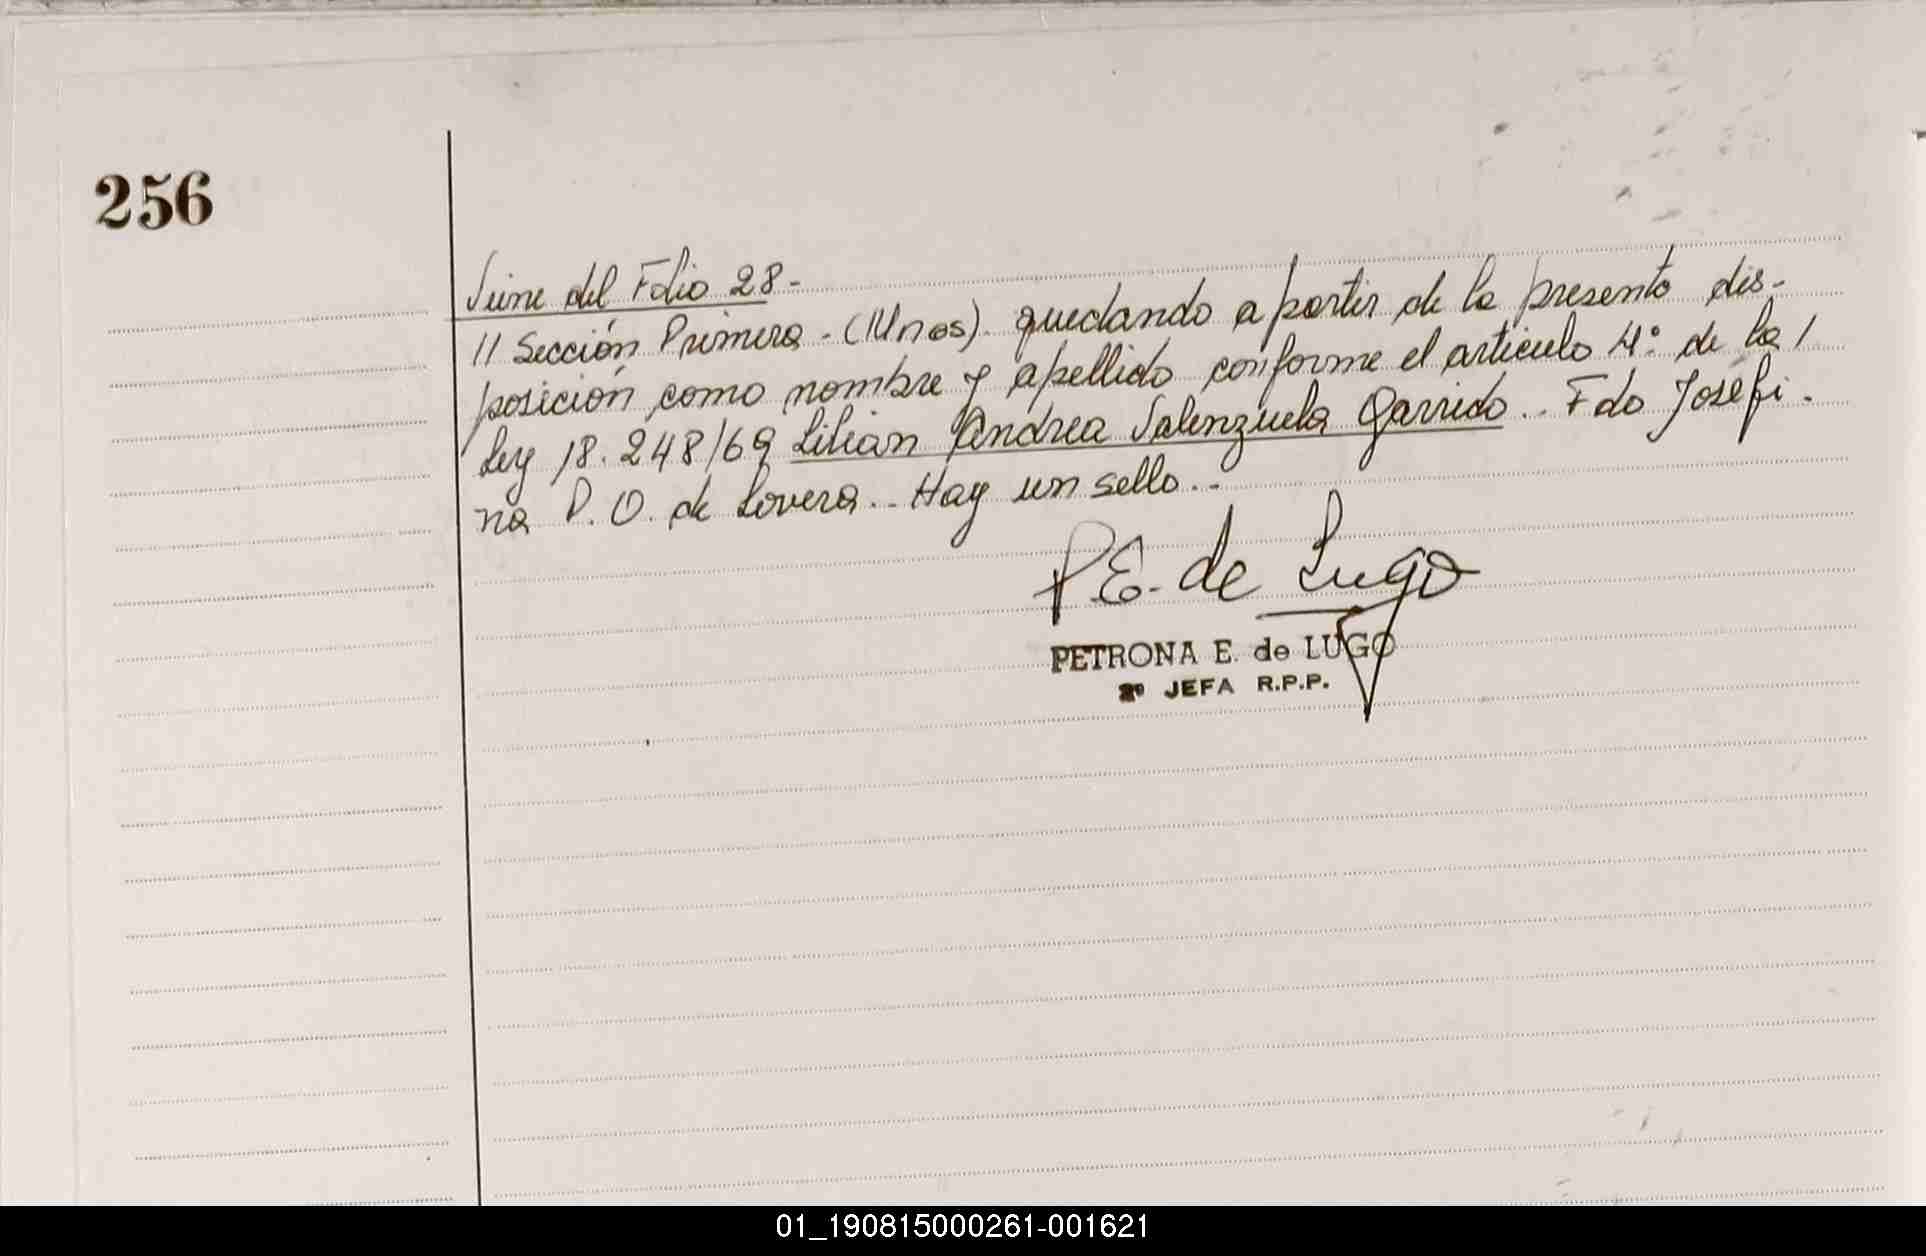 256
Viene del Folio 28-
// Sección Primera - (Unos). quedando a partir de la presente dis-
posición como nombre y apellido conforme el articulo 4º de la /
Ley 18.248/69 Lilian Andrea Valenzuela Garrido.. Fdo Josefi-
na P. O. de Lovera.. Hay un sello..
P E. de Lugo
PETRONA E. de LUGO
2º JEFA R.P.P.
01_190815000261-001621